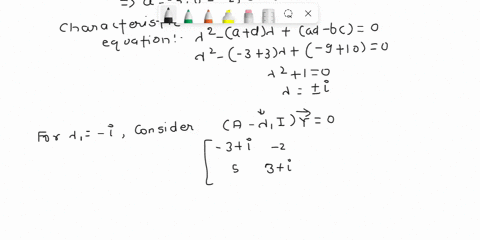 Characteristic
equation:- λ²-(a+d)λ + (ad-bc) = 0
λ²-(-3+3)λ + (-9+10) = 0
λ²+1=0
λ = ±i
For λ₁=-i, Consider (A-λ₁I)Y⃗=0
-3+i -2
5 3+i